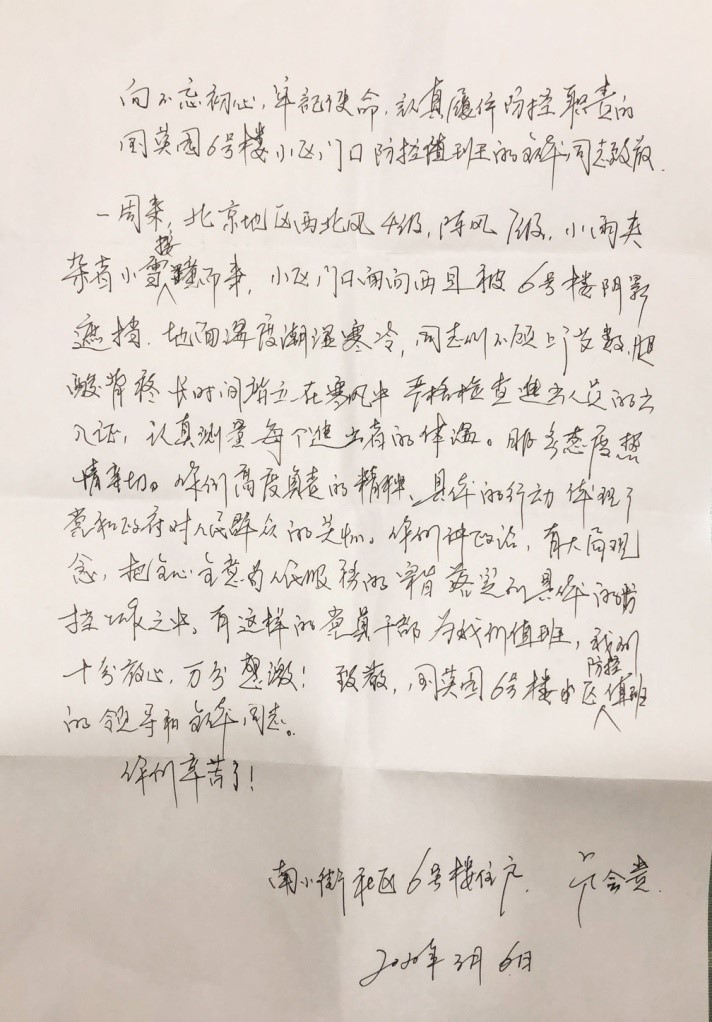 向不忘初心,牢记使命,认真履行防控职责的
国英园6号楼小区门口防控值班的全体同志致敬.
一周来,北京地区西北风4级,阵风7级,小雨夹
杂着小雪接踵而来,小区门口面向西且被6号楼阴影
遮挡.地面温度潮湿寒冷,同志们不顾上岁数,腿
酸背疼长时间站立在寒风中严格检查进出人员的出
入证,认真测量每个进出者的体温。服务态度热
情亲切。你们高度负责的精神、具体的行动体现了
党和政府对人民群众的关怀。你们讲政治,有大局观
念,把全心全意为人民服务的宗旨落实到具体的防
控之中。有这样的党员干部为我们值班,我们
十分放心,万分感激!致敬,国英园6号楼小区防控值班
的领导和全体同志。
你们辛苦了!
南小街社区6号楼住户. 会贵.
2020年3月6日